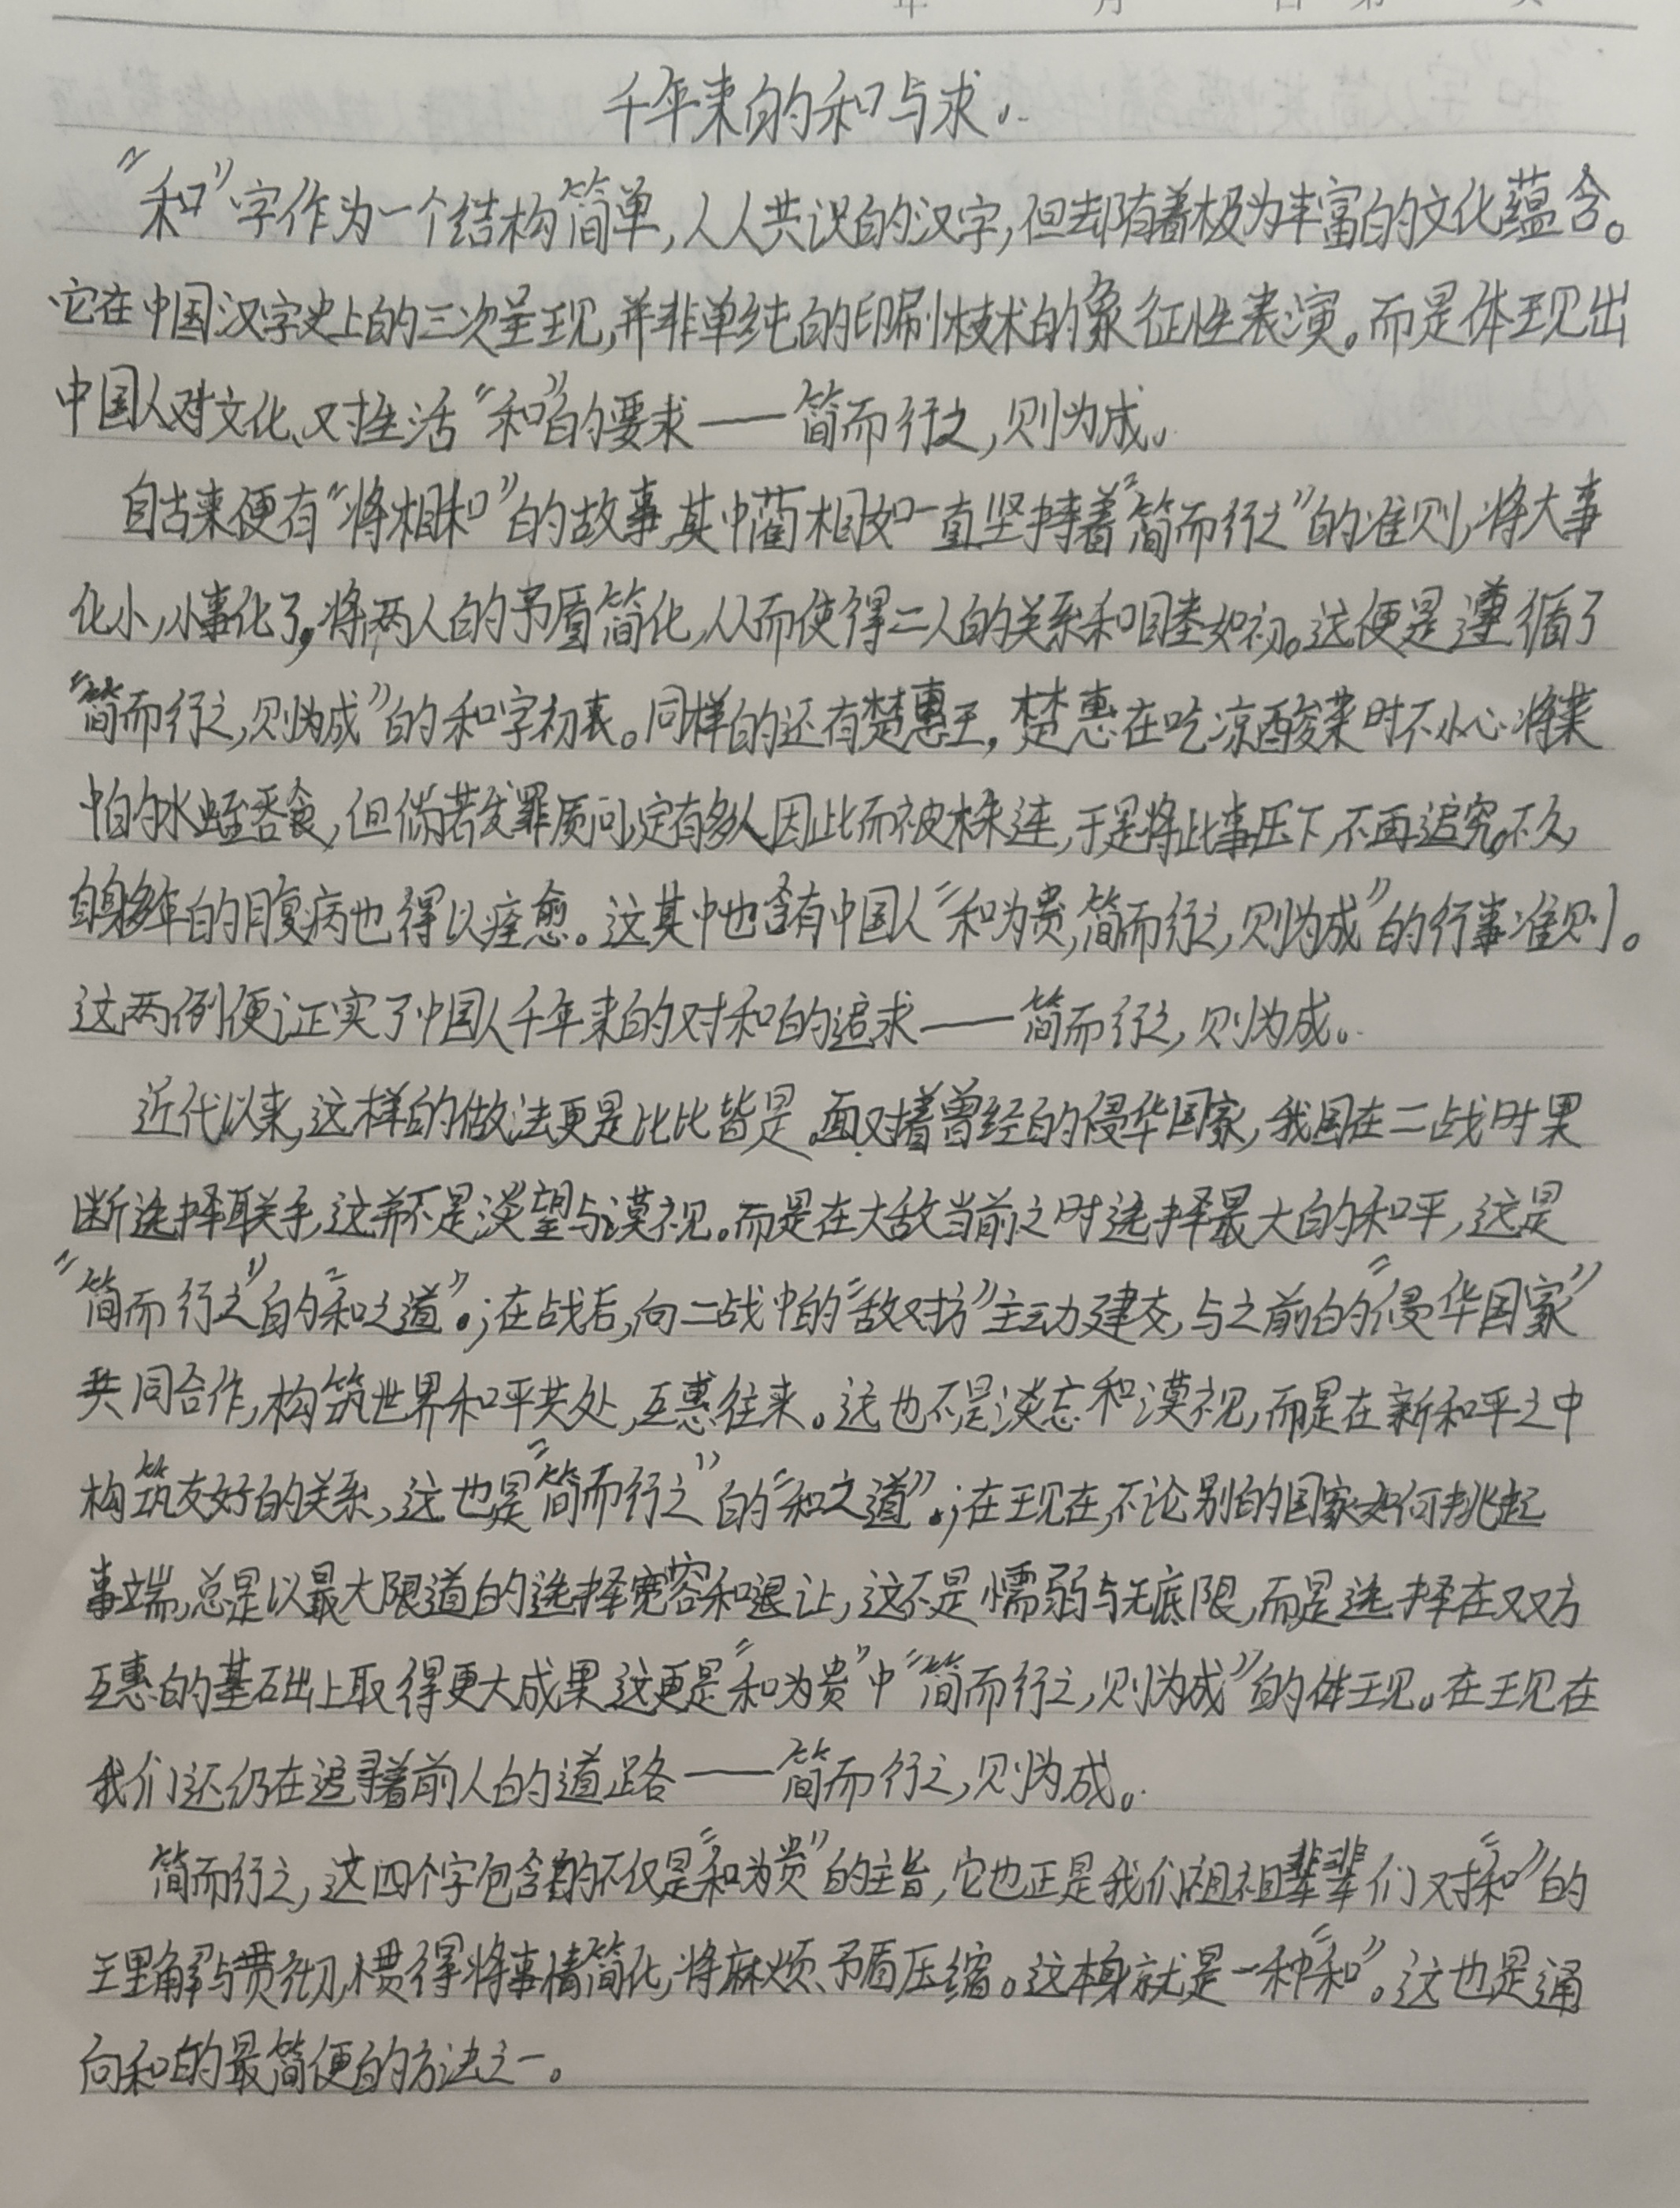 千年来的和与求。
“和”字作为一个结构简单,人人共识的汉字,但却有着极为丰富的文化蕴含。
它在中国汉字史上的三次呈现,并非单纯的印刷技术的象征性表演。而是体现出
中国人对文化、对生活“和”的要求——简而行之,则为成。
自古来便有“将相和”的故事,其中蔺相如一直坚持着“简而行之”的准则,将大事
化小,小事化了,将两人的矛盾简化,从而使得二人的关系和睦如初。这便是遵循了
“简而行之,则为成”的和字初衷。同样的还有楚惠王,楚惠在吃凉酸菜时不小心将菜
中的水蛭吞食,但倘若发罪质问,定有多人因此而被株连,于是将此事压下,不再追究。不久,
自身多年的腹病也得以痊愈。这其中也含有中国人“和为贵,简而行之,则为成”的行事准则。
这两例便证实了中国人千年来的对和的追求——简而行之,则为成。
近代以来,这样的做法更是比比皆是。面对着曾经的侵华国家,我国在二战时果
断选择联手,这并不是淡望与漠视。而是在大敌当前之时选择最大的和平,这是
“简而行之”的“和之道”。;在战后,向二战中的“敌对方”主动建交,与之前的“侵华国家”
共同合作,构筑世界和平共处,互惠往来。这也不是淡忘和漠视,而是在新和平之中
构筑友好的关系,这也是“简而行之”的“和之道”。;在现在,不论别的国家如何挑起
事端,总是以最大限道的选择宽容和退让,这不是懦弱与无底限,而是选择在双方
互惠的基础上取得更大成果,这更是“和为贵”中“简而行之,则为成”的体现。在现在
我们还仍在追寻着前人的道路——简而行之,则为成。
简而行之,这四个字包含的不仅是“和为贵”的主旨,它也正是我们祖祖辈辈们对“和”的
理解与贯彻,惯得将事情简化,将麻烦、矛盾压缩。这本身就是一种“和”。这也是通
向和的最简便的方法之一。